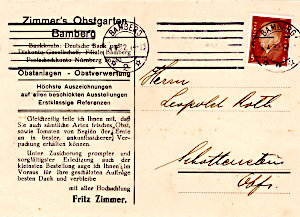 Zimmer's Obstgarten
Bamberg
Bankkonto: Deutsche Bank und
Diskonto-Gesellschaft, Filiale Bamberg
Postscheckkonto Nürnberg
Obstanlagen - Obstverwertung
Höchste Auszeichnungen
auf allen beschickten Ausstellungen
Erstklassige Referenzen
Gleichzeitig teile ich Ihnen mit, daß
Sie auch sämtliche Arten frisches Obst,
sowie Tomaten von Beginn der Ernte
an in bester, ankunftssicherer Ver-
packung erhalten können.
Unter Zusicherung prompter und
sorgfältigster Erledigung auch der
kleinsten Bestellung sage ich Ihnen im
Voraus für Ihre geschätzten Aufträge
besten Dank und verbleibe
mit aller Hochachtung
Fritz Zimmer.
BAMBERG
BAMBERG
Herrn
Leopold Roth
Schottenstein
Obfr.